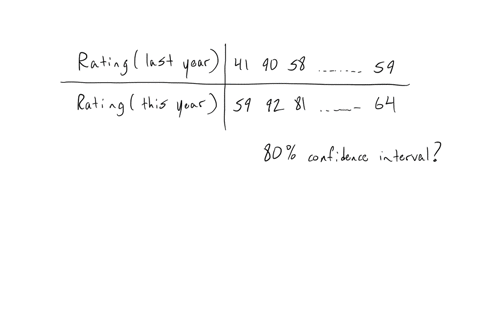 Rating (last year) 41 90 58 ........ 59
Rating (this year) 59 92 81 ........ 64
80% confidence interval?